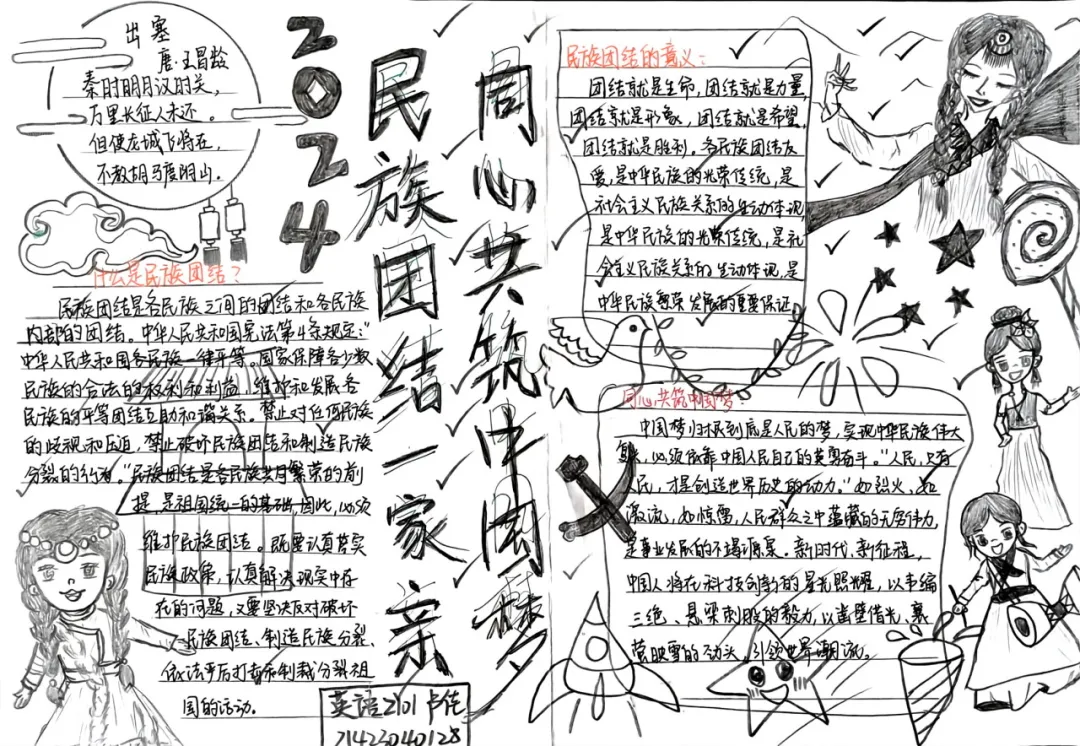 出塞
唐·王昌龄
秦时明月汉时关，
万里长征人未还。
但使龙城飞将在，
不教胡马度阴山。
2024
民族团结一家亲
同心共筑中国梦
什么是民族团结？
民族团结是各民族之间的团结和各民族
内部的团结。中华人民共和国宪法第4条规定："
中华人民共和国各民族一律平等。国家保障各少数
民族的合法的权利和利益，维护和发展各
民族的平等团结互助和谐关系。禁止对任何民族
的歧视和压迫，禁止破坏民族团结和制造民族
分裂的行为。"民族团结是各民族共同繁荣的前
提，是祖国统一的基础，因此，必须
维护民族团结。既要认真落实
民族政策，认真解决现实中存
在的问题，又要坚决反对破坏
民族团结、制造民族分裂，
依法严厉打击和制裁分裂祖
国的活动。
英语2101 卢佳
21423040128
民族团结的意义：
团结就是生命，团结就是力量，
团结就是形象，团结就是希望，
团结就是胜利。各民族团结友
爱，是中华民族的光荣传统，是
社会主义民族关系的生动体现，
是中华民族的光荣传统，是社
会主义民族关系的生动体现，是
中华民族繁荣发展的重要保证。
同心共筑中国梦
中国梦归根到底是人民的梦，实现中华民族伟大
，必须依靠中国人民自己的英勇奋斗。"人民，只有
人民，才是创造世界历史的动力。"如烈火，如
激流，如惊雷，人民群众之中蕴藏的无穷伟力，
是事业发展的不竭源泉。新时代，新征程，
中国人将在科技创新的星光照耀，以韦编
三绝、悬梁刺股的毅力，以凿壁借光、囊
萤映雪的劲头，引领世界潮流。